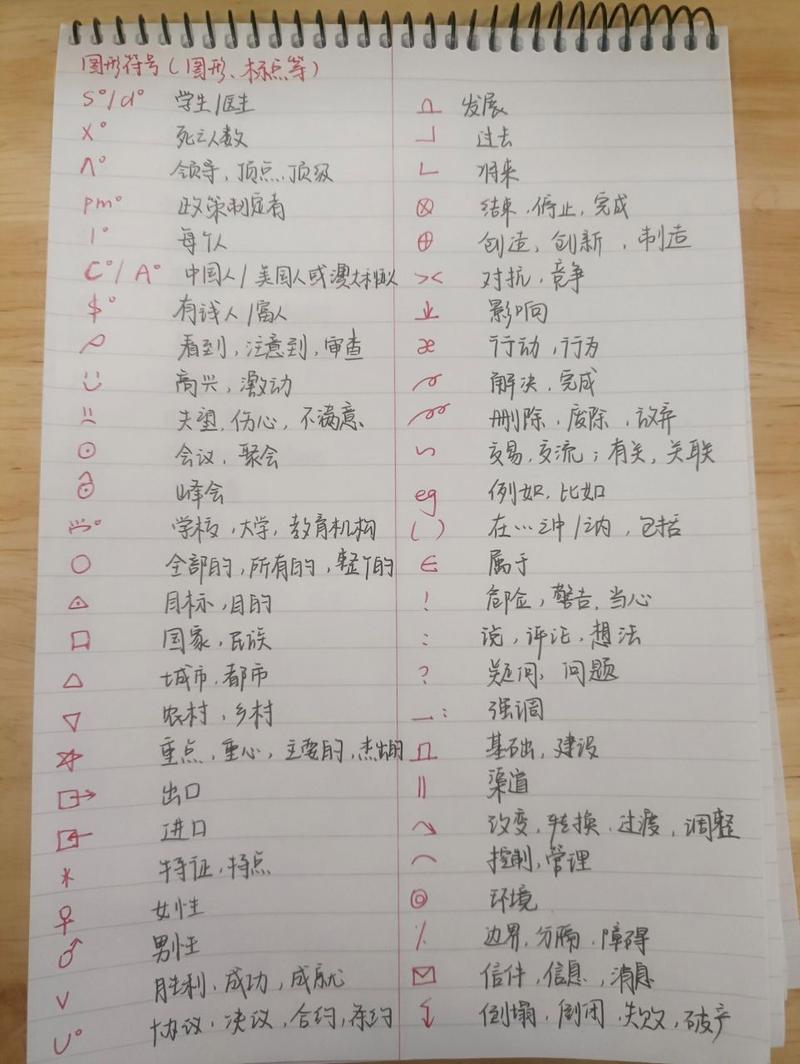 图形符号(图形、标点等)
S°/d° 学生/医生
X° 死亡人数
Λ° 领导,顶点,顶级
pm° 政策制定者
1° 每个人
C°/A° 中国人/美国人或澳大利亚人
$° 有钱人/富人
看到,注意到,审查
高兴,激动
失望,伤心,不满意
⊙ 会议,聚会
峰会
学校,大学,教育机构
○ 全部的,所有的,整个的
目标,目的
□ 国家,民族
△ 城市,都市
▽ 农村,乡村
☆ 重点,重心,主要的,杰出的
出口
进口
* 特征,特点
♀ 女性
♂ 男性
v 胜利,成功,成就
U° 协议,决议,合约,条约
发展
┘ 过去
└ 将来
⊗ 结束,停止,完成
⊕ 创造,创新,制造
>< 对抗,竞争
影响
æ 行动,行为
解决,完成
删除,废除,放弃
交易,交流;有关,关联
eg 例如,比如
( ) 在…之中/之内,包括
∈ 属于
! 危险,警告,当心
: 说,评论,想法
? 疑问,问题
__: 强调
基础,建设
|| 渠道
改变,转换,过渡,调整
⌒ 控制,管理
◎ 环境
边界,分隔,障碍
信件,信息,消息
倒塌,倒闭,失败,破产